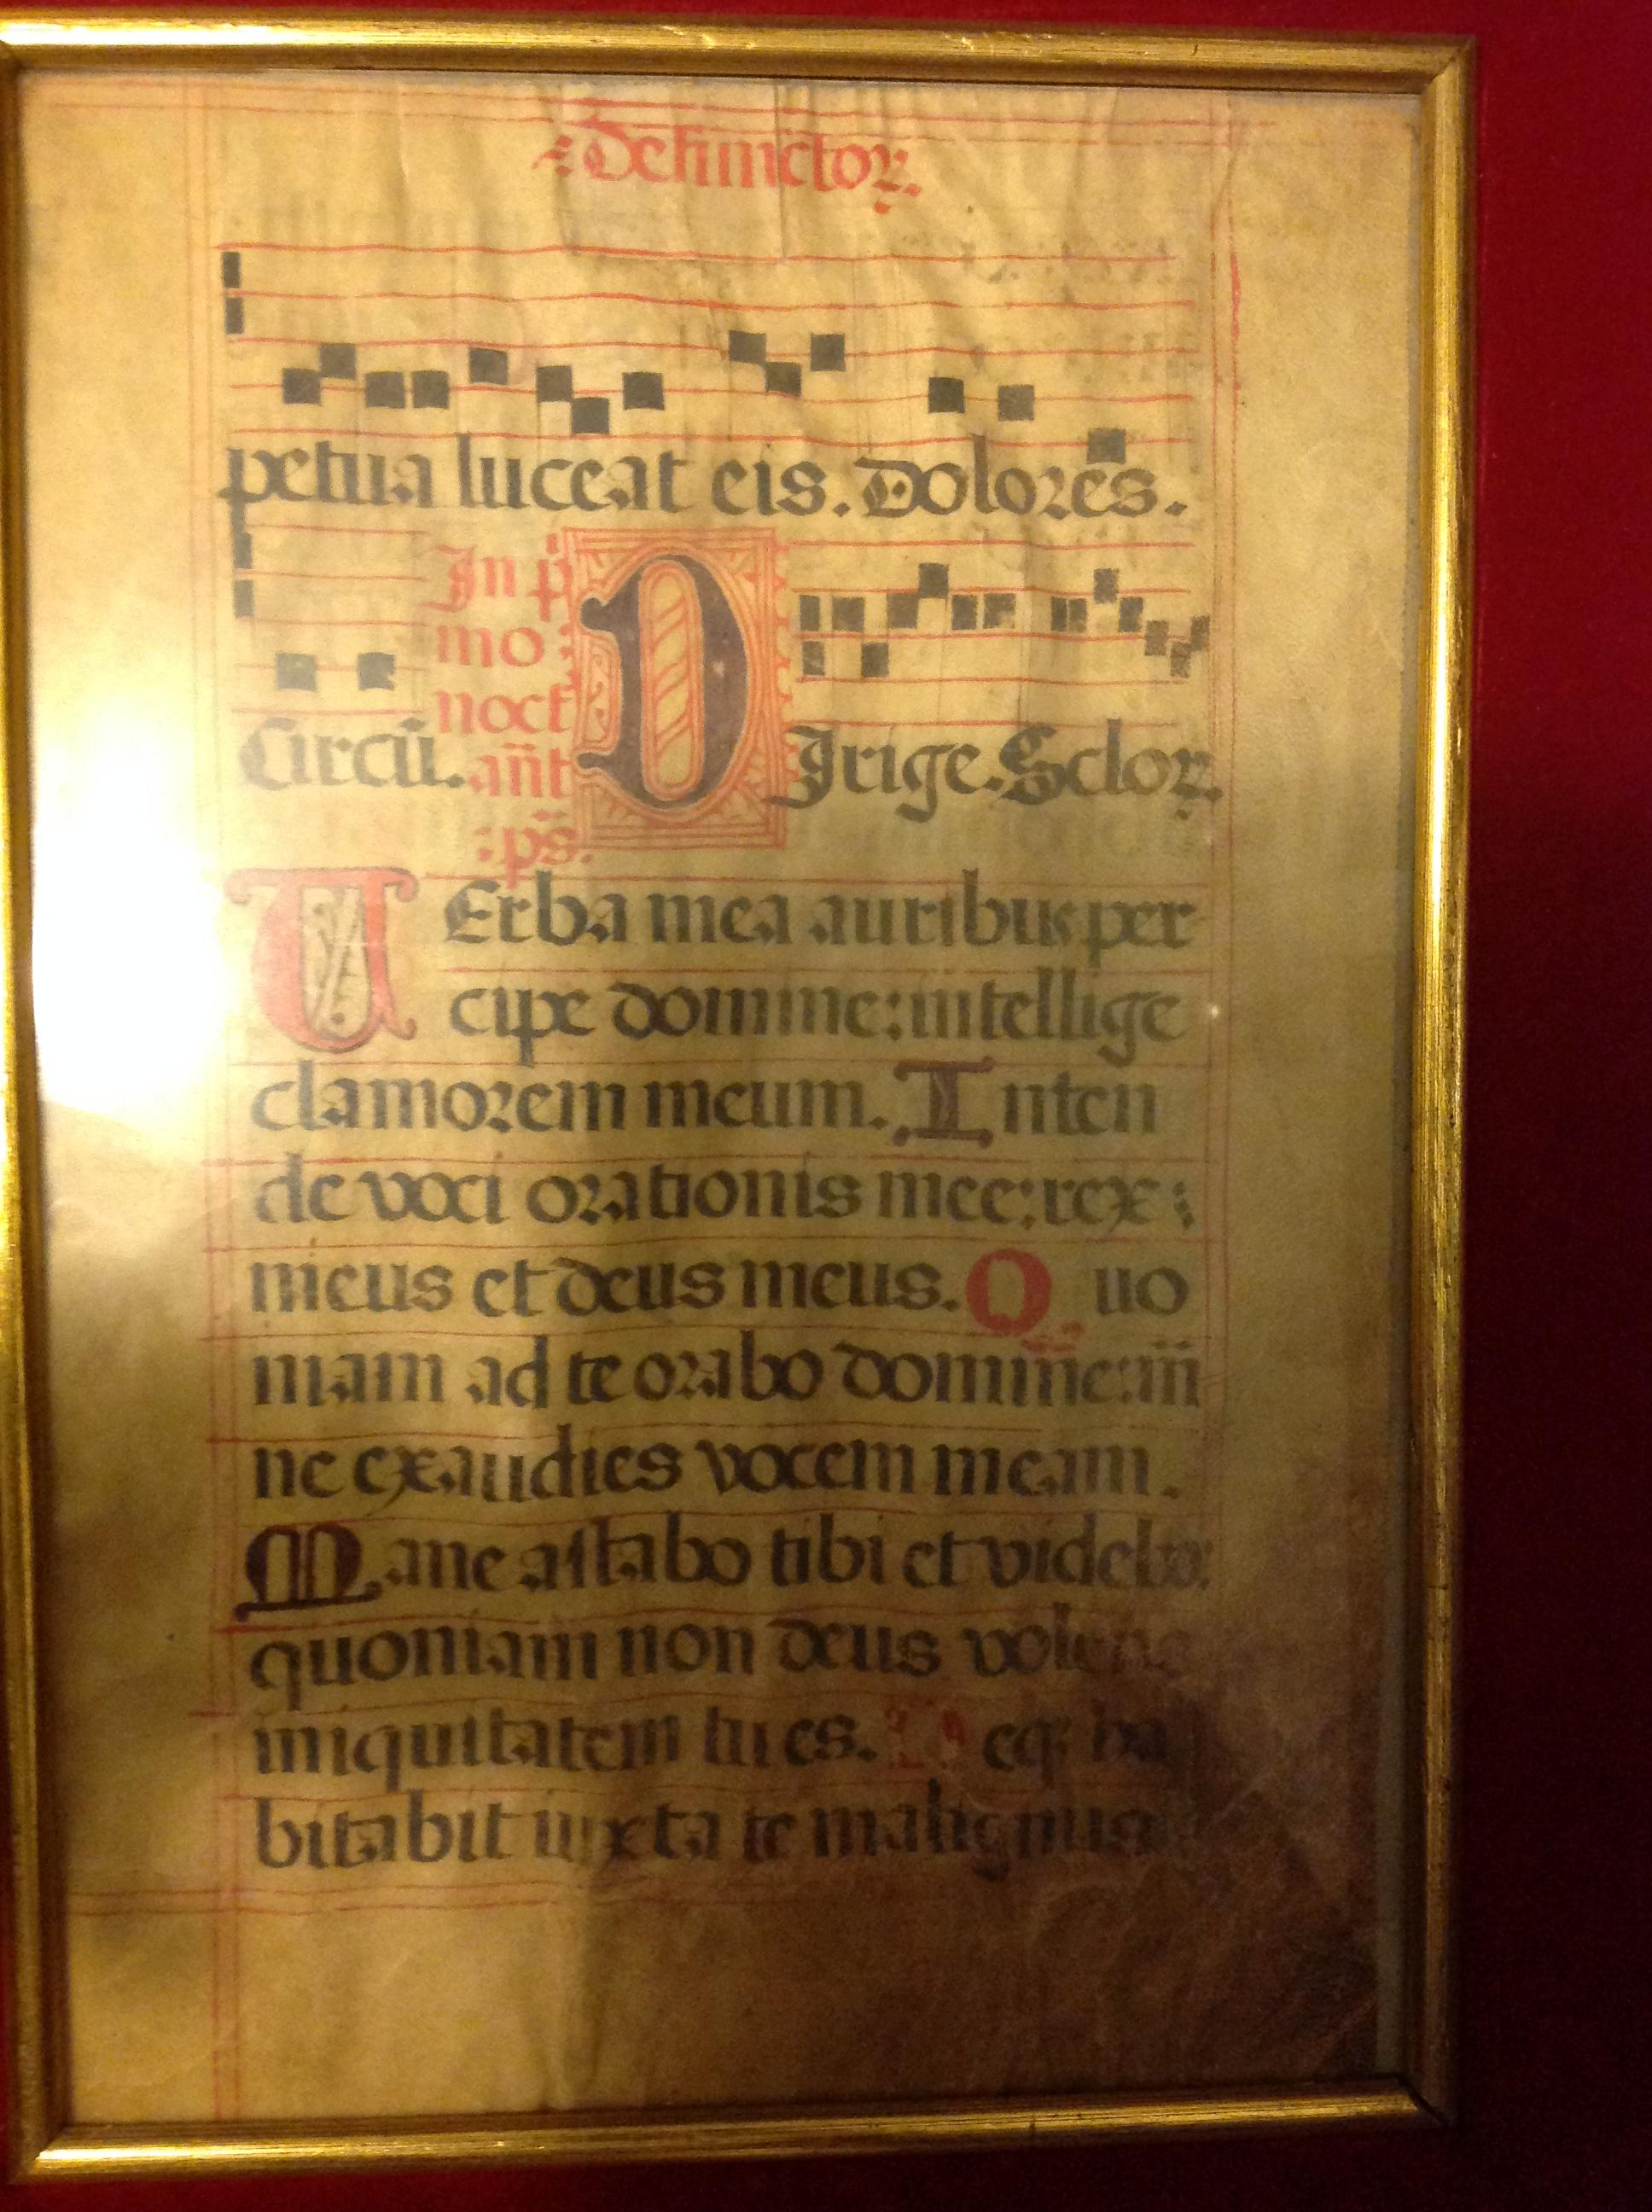 :Defunctoꝝ.
petua luceat eis. Dolores.
Circū. In p̄
mo:
noct
an̄t
:ps̄.
DIrige. Scloꝝ.
UErba mea auribus per
cipe domine: intellige
clamorem meum. Inten
de voci orationis mee: rex:
meus et deus meus. Quo
niam ad te orabo domine: m̄
ne exaudies vocem meam.
Mane astabo tibi et videbo:
quoniam non deus volens
iniquitatem tu es. Neq; ha
bitabit iuxta te malignus